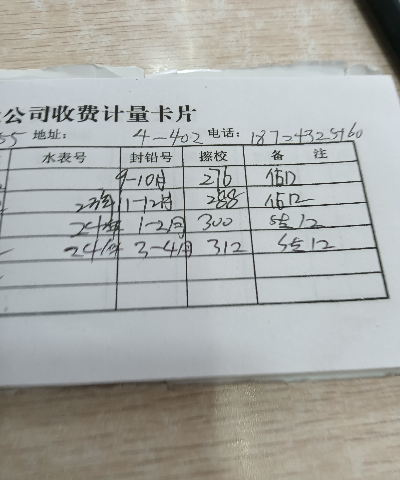 公司收费计量卡片
55 地址: 4-402 电话: 18724325460
水表号 封铅号 擦校 备 注
9-10月 276 估12
23年 11-12月 288 估12
24年 1-2月 300 估12
24年 3-4月 312 估12